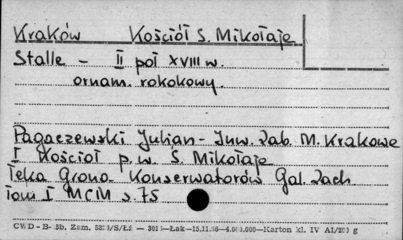 Kraków Kościół S. Mikołaja
Stalle - II poł XVIII w.
ornam. rokokowy.
Pagaczewski Julian - Inw. zab. M. Krakowa
I Kościoł p.w. S. Mikołaja
Teka Grona Konserwatorów Gal. Zach.
Tom I MCM s. 75
CWD-B- 5b. Zam. — Karton kl. IV A1/200 g